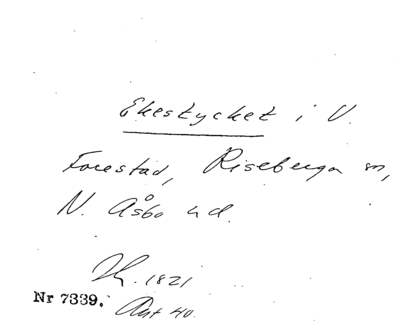 Ekestycket i V.
Forestad, Riseberga sn,
N. Åsbo hd.
Sk. 1821
Nr 7339. Akt 40.